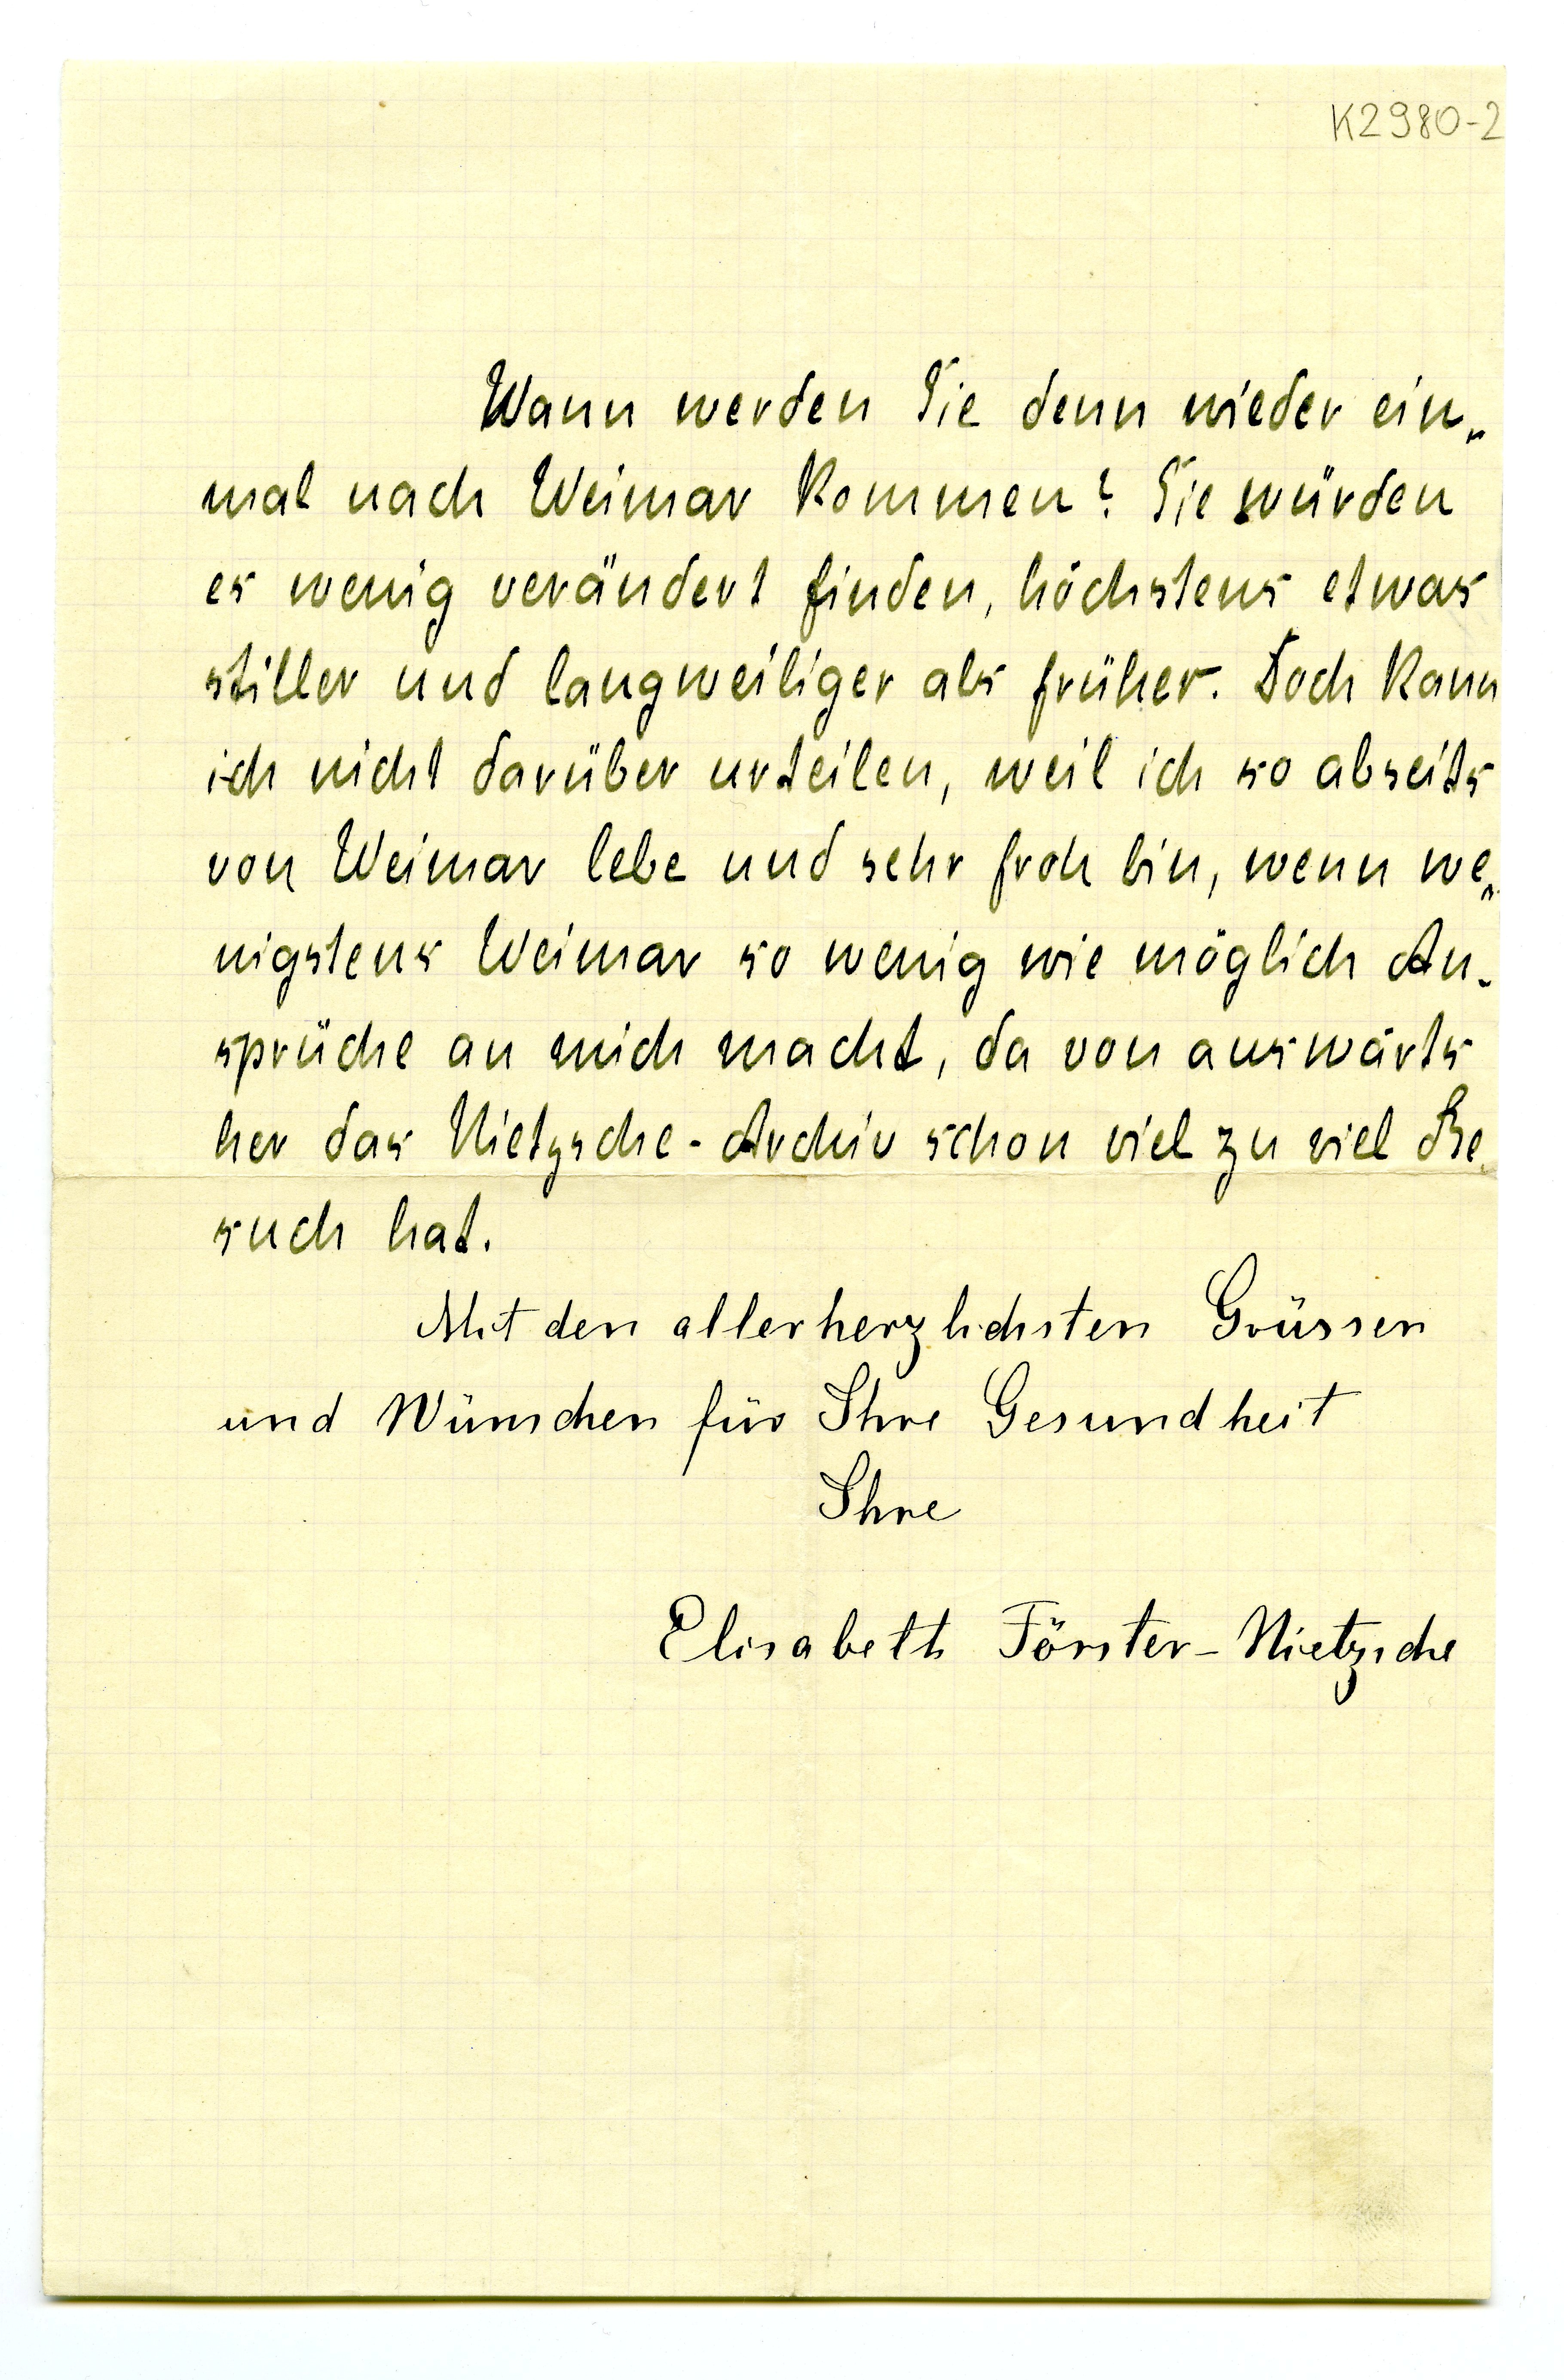 K2980-2
Wann werden Sie denn wieder ein„
mal nach Weimar kommen? Sie würden
es wenig verändert finden, höchstens etwas
stiller und langweiliger als früher. Doch kann
ich nicht darüber urteilen, weil ich so abseits
von Weimar lebe und sehr froh bin, wenn we„
nigstens Weimar so wenig wie möglich An-
sprüche an mich macht, da von auswärts
her das Nietzsche-Archiv schon viel zu viel Be-
such hat.
Mit den allerherzlichsten Grüssen
und Wünschen für Ihre Gesundheit
Ihre
Elisabeth Förster-Nietzsche